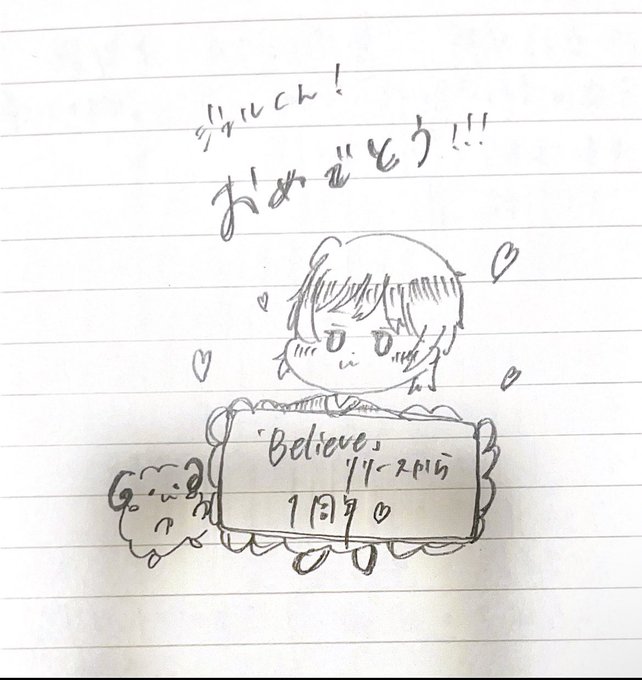 ジェルくん!
おめでとう!!!
「Believe」
リリースから
1周年♡